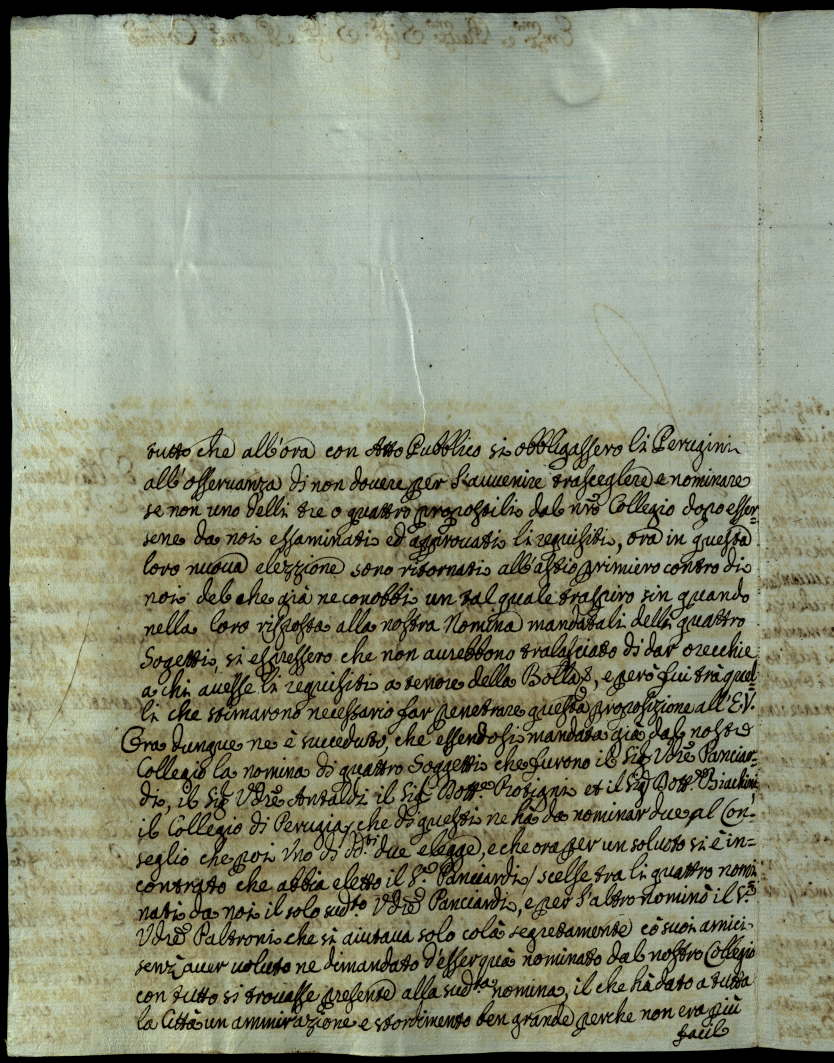 tutto che all'ora con Atto Pubblico si obbligassero li Perugini
all'osseruanza di non douere per l'auuenire trascegliere e nominare
se non uno delli tre o quattro propostili dal nr̃o Collegio dopo esser=
sene da noi essaminati ed approuati li requisiti, ora in questa
loro nuoua elezzione sono ritornati all'astio primiero contro di
noi del che già ne conobbi un tal quale traspiro sin quando
nella loro risposta alla nostra Nomina mandatali delli quattro
Sogetti, si espressero che non aurebbono tralasciato di dar orecchie
a chi auesse li requisiti a tenore della Bolla, e però fui trà quel=
li che stimarono necessario far penetrare questa proposizione all'E.V.
Ora dunque ne è succeduto, che essendosi mandata già dal nostro
Collegio la nomina di quattro Soggetti che furono il Sig.r Vdrẽ Panciar=
di, il Sig.r Vdrẽ Antaldi il Sig.r Dott.re Piotigni et il Sig.r Dott.re Biachini
il Collegio di Perugia, che di questi ne hà da nominar due al Con=
seglio che poi Vno di dd.ti due elegge, e che ora per un soluoto si è in=
contrato che abbia eletto il S.r Panciardi / scelse tra li quattro nomi
nati da noi il solo sud.to Vdrẽ Panciardi, e per l'altro nominò il S.r
Vdrẽ Paltroni che si aiutaua solo colà segretamente cõ suoi amici
senz'auer uoluto ne dimandato d'esser quà nominato dal nostro Collegio
con tutto si trouasse presente alla sud.ta nomina, il che hà dato a tutta
la Città un ammirazione e stordimento ben grande perche non era più
facil